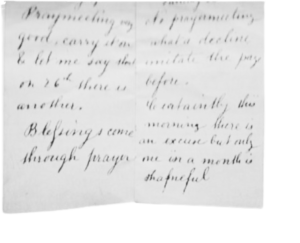 Praymeeting my
good, carry it on
& let me say that
on 26th there is
another.
Blessings come
through prayer
No prayameeting
what's decline
imitate the pay
before.
Certaintly this
morning there is
an excuse but only
one in a month is
shameful